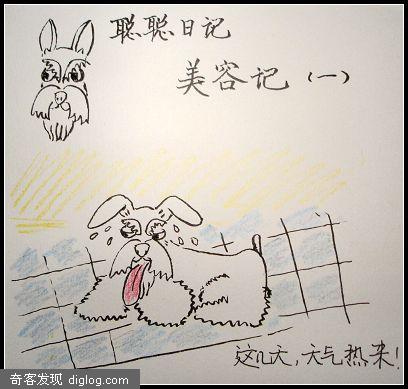 聪聪日记
美容记（一）
这几天，天气热来！
奇客发现 diglog.com